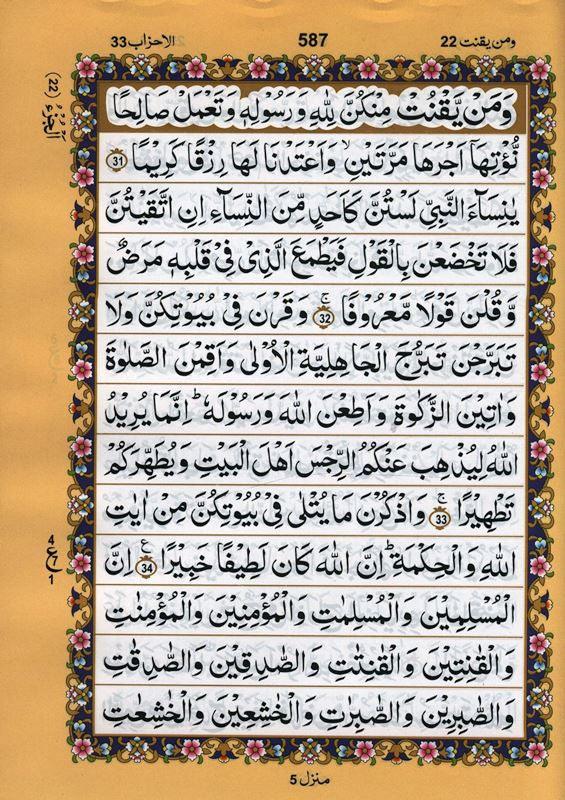 ومن یقنت 22
587
الاحزاب 33
الجزء (22)
وَمَنۡ يَّقۡنُتۡ مِنۡكُنَّ لِلّٰهِ وَرَسُوۡلِهٖ وَتَعۡمَلۡ صَالِحًـا
نُّؤۡتِهَـآ اَجۡرَهَا مَرَّتَيۡنِۙ وَاَعۡتَدۡنَا لَهَا رِزۡقًا كَرِيۡمًا 31
يٰنِسَآءَ النَّبِىِّ لَسۡتُنَّ كَاَحَدٍ مِّنَ النِّسَآءِ اِنِ اتَّقَيۡتُنَّ
فَلَا تَخۡضَعۡنَ بِالۡقَوۡلِ فَيَـطۡمَعَ الَّذِىۡ فِىۡ قَلۡبِهٖ مَرَضٌ
وَّقُلۡنَ قَوۡلًا مَّعۡرُوۡفًا ۚ 32 وَقَرۡنَ فِىۡ بُيُوۡتِكُنَّ وَلَا
تَبَـرَّجۡنَ تَبَرُّجَ الۡجَاهِلِيَّةِ الۡاُوۡلٰى وَاَقِمۡنَ الصَّلٰوةَ
وَاٰتِيۡنَ الزَّكٰوةَ وَاَطِعۡنَ اللّٰهَ وَرَسُوۡلَهٗ ؕ اِنَّمَا يُرِيۡدُ
اللّٰهُ لِيُذۡهِبَ عَنۡكُمُ الرِّجۡسَ اَهۡلَ الۡبَيۡتِ وَيُطَهِّرَكُمۡ
تَطۡهِيۡرًا ۚ 33 وَاذۡكُرۡنَ مَا يُتۡلٰى فِىۡ بُيُوۡتِكُنَّ مِنۡ اٰيٰتِ
اللّٰهِ وَالۡحِكۡمَةِ ؕ اِنَّ اللّٰهَ كَانَ لَطِيۡفًا خَبِيۡرًا ع 34 اِنَّ
الۡمُسۡلِمِيۡنَ وَالۡمُسۡلِمٰتِ وَالۡمُؤۡمِنِيۡنَ وَالۡمُؤۡمِنٰتِ
وَالۡقٰنِتِيۡنَ وَالۡقٰنِتٰتِ وَالصّٰدِقِيۡنَ وَالصّٰدِقٰتِ
وَالصّٰبِرِيۡنَ وَالصّٰبِرٰتِ وَالۡخٰشِعِيۡنَ وَالۡخٰشِعٰتِ
4
ع
1
منزل 5